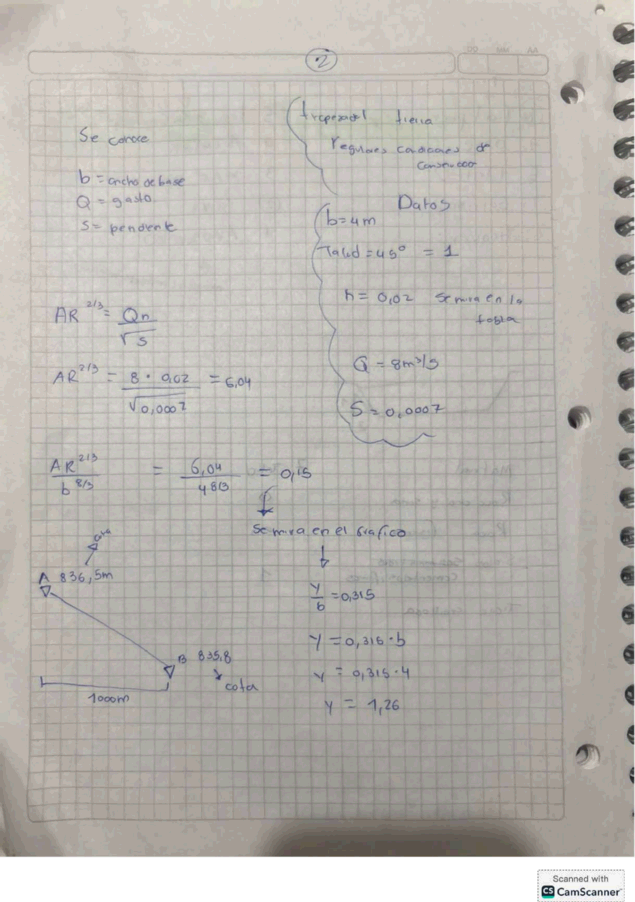 2
Se conoce
b = ancho de base
Q = gasto
S = pendiente
trapezoidal tierra
regulares condiciones de
conservacion
Datos
b = 4m
Talud = 45° = 1
n = 0,02 se mira en la
tabla
Q = 8m³/s
S = 0,0007
AR^2/3 = Qn / √S
AR^2/3 = 8 · 0,02 / √0,0007 = 6,04
AR^2/3 / b^8/3 = 6,04 / 4^8/3 = 0,15
se mira en el grafico
Y/b = 0,315
Y = 0,315 · b
Y = 0,315 · 4
Y = 1,26
cota
A 836,5m
B 835,8
cota
1000m
Scanned with
CS CamScanner